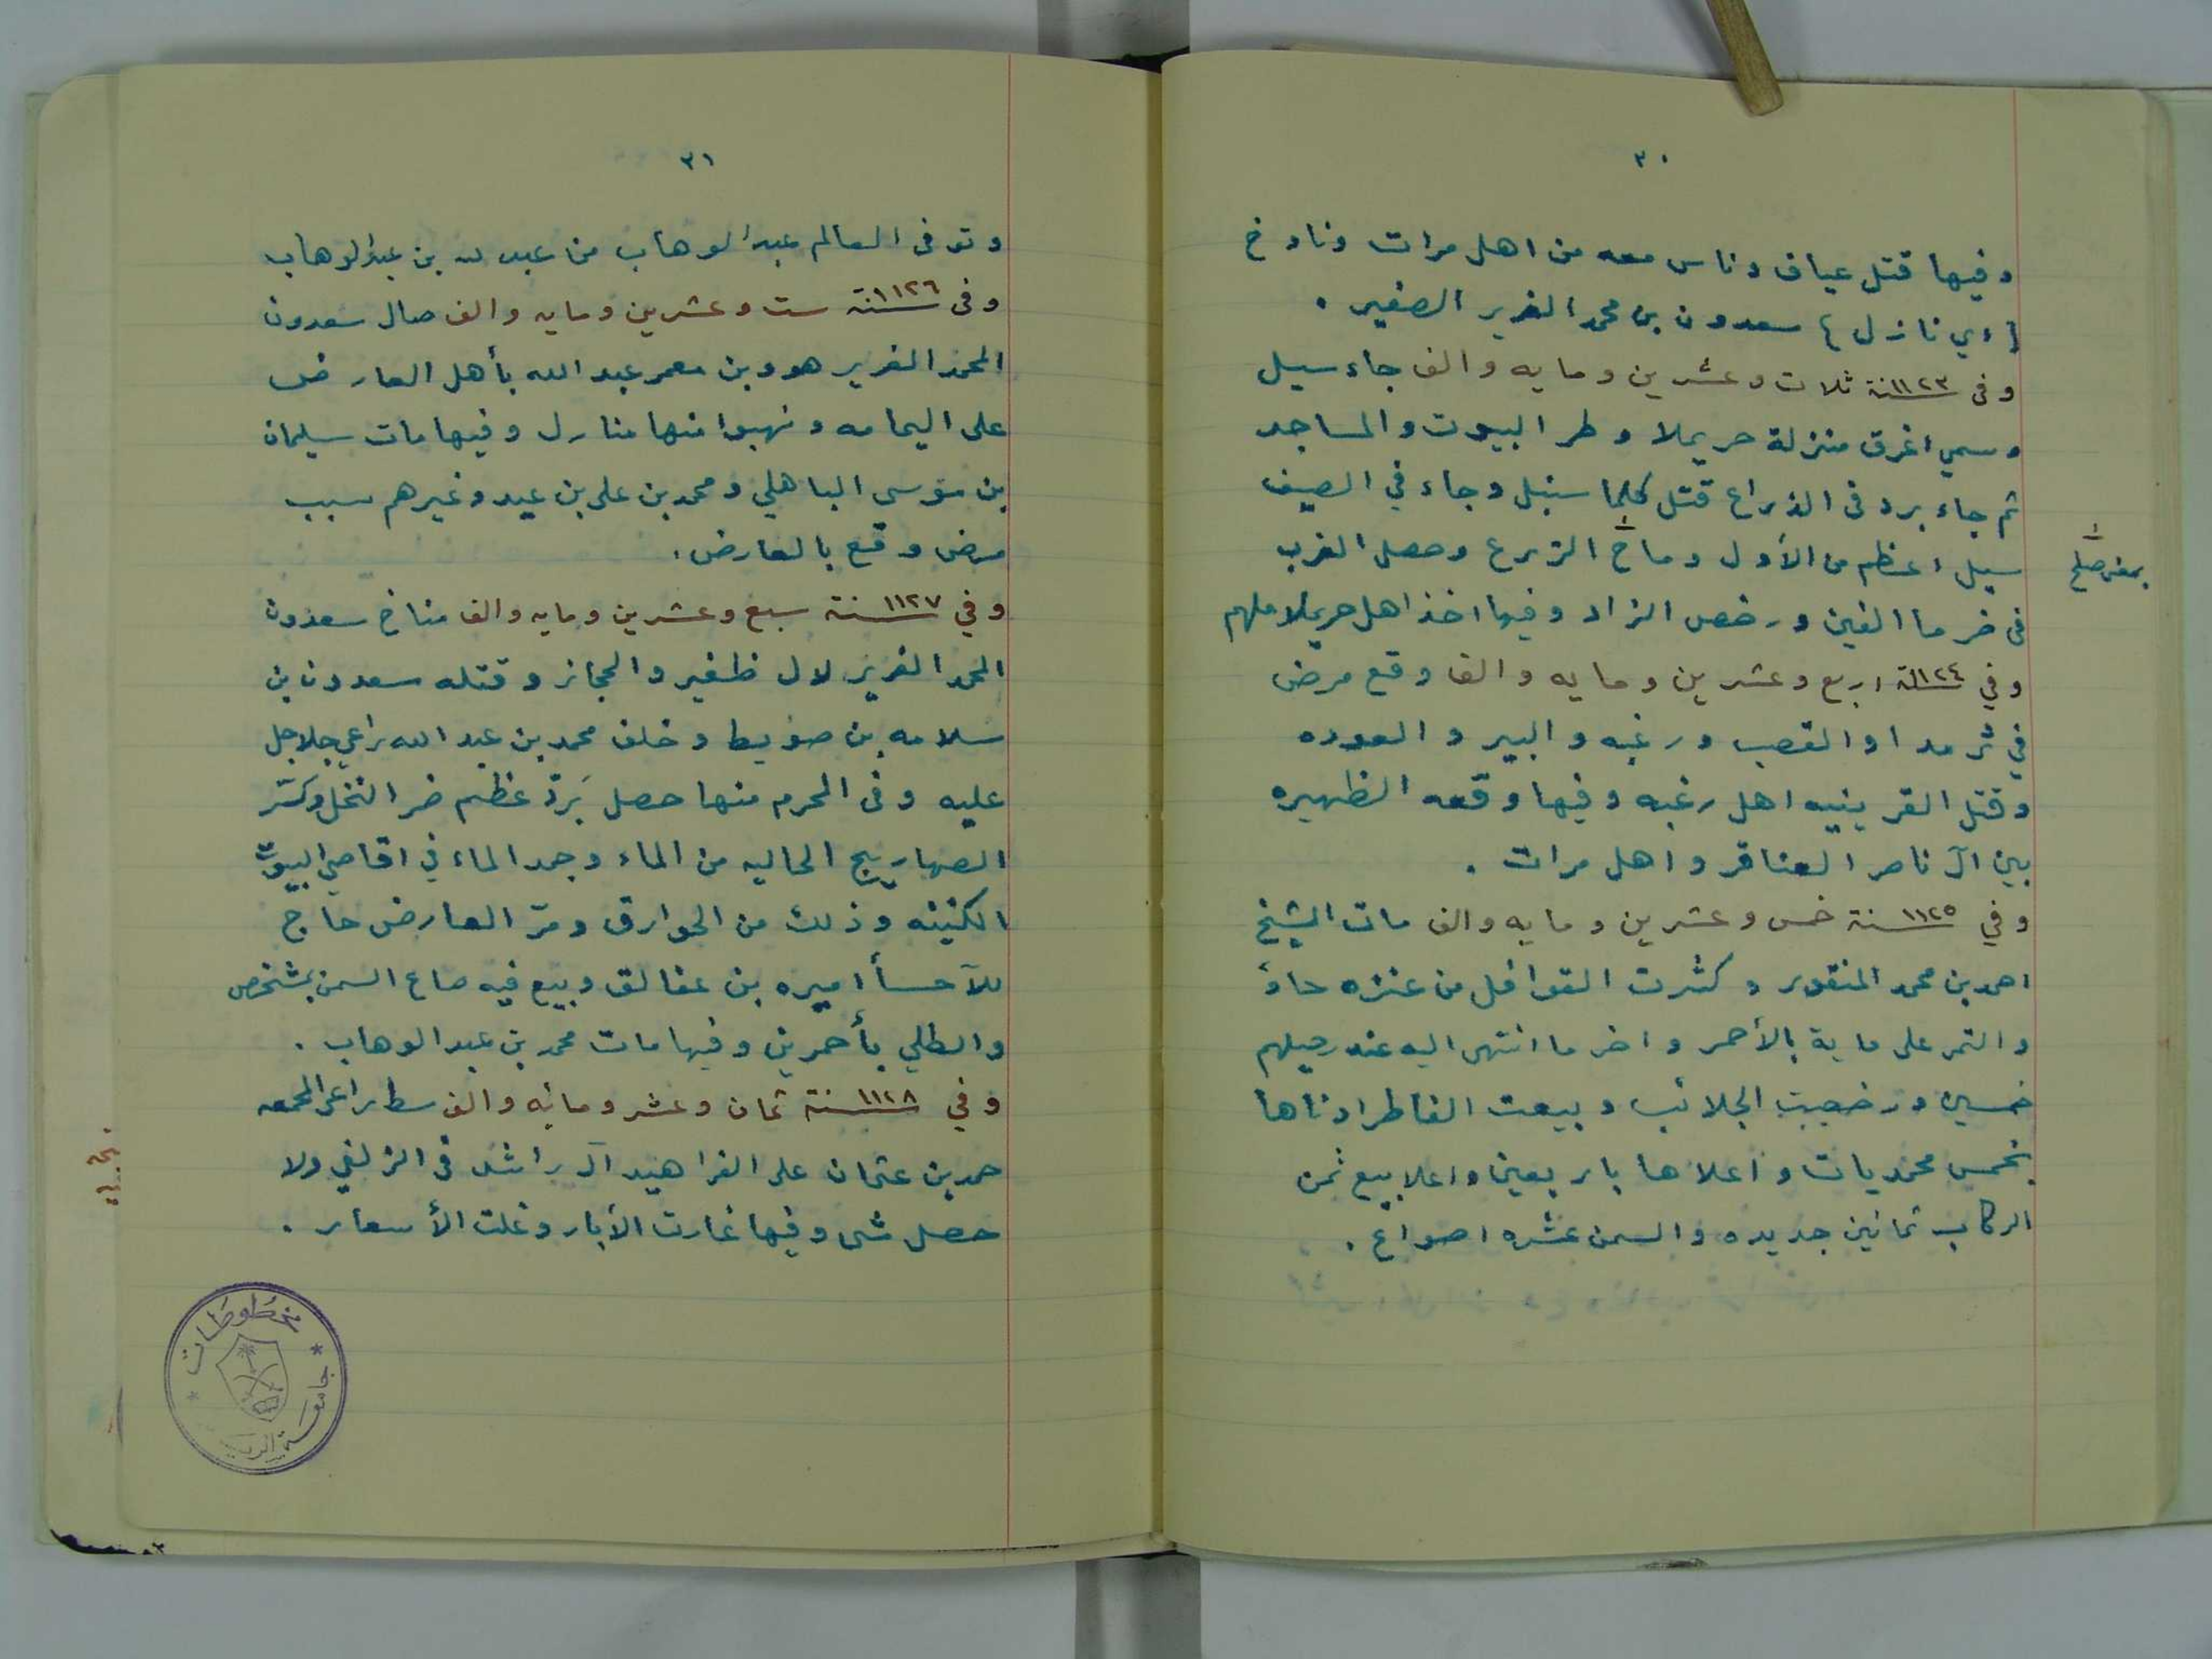 ٣٠
وفيها قتل عياف وناس معه من اهل مرات وناوخ
(اي نازل) سعدون بن محمد الغرير الصغير .
وفى ١١٢٣ سنة ثلاث وعشرين ومايه والف جاء سيل
وسمي اغرق منزلة حريملا وطر البيوت والمساجد
ثم جاء برد فى الذراع قتل كلما سنبل وجاء في الصيف
سيل اعظم من الأول وماخ الزرع وحصل الغرب
بمعنى صلح
فى ضرما الفين ورخص الزاد وفيها اخذ اهل حريملا ملهم
وفي ١١٢٤ سنة اربع وعشرين ومايه والف وقع مرض
في ثرمدا والقصب ورغبه والبير والعوده
وقتل القرينيه اهل رغبه وفيها وقعه الظهيره
بين آل ناصر العناقر واهل مرات .
وفي ١١٢٥ سنة خمس وعشرين ومايه والف مات الشيخ
احمد بن محمد المنقور وكثرت القوافل من عنزه حاد
والتمر على ماية بالأحمر واخر ما انتهى اليه عند رحيلهم
خمسين ورخصت الجلائب وبيعت الفاطر ادناها
بخمس محمديات واعلاها باربعين واعلا بيع ثمن
الركاب ثمانين جديده والسمن عشره اصواع .
٣١
وتوفى العالم عبد الوهاب من عبد لله بن عبد الوهاب
وفى ١١٢٦ سنة ست وعشرين ومايه والف صال سعدون
المحمد الغرير هو وبن معمر عبد الله بأهل العارض
على اليمامه ونهبوا منها منازل وفيها مات سليمان
بن موسى الباهلي ومحمد بن على بن عيد وغيرهم سبب
مرض وقع بالعارض .
وفي ١١٢٧ سنة سبع وعشرين ومايه والف مناخ سعدون
المحمد الغرير لال ظفير والحجاز وقتله سعدون بن
سلامه بن صويط وخلف محمد بن عبد الله راعي جلاجل
عليه وفى المحرم منها حصل بَردٌ عظم ضر النخل وكسر
الصهاريج الخاليه من الماء وجمد الماء في اقاصي البيوت
الكنينه وذلك من الخوارق ومرّ العارض حاج
للآحسأ اميره بن عفالق وبيع فيه صاع السمن بمشخص
والطلي بأحمرين وفيها مات محمد بن عبد الوهاب .
وفي ١١٢٨ سنة ثمان وعشر ومائه والف سطا راعى المجمعه
حمد بن عثمان على الفراهيد آل راشد فى الزلفي ولا
حصل شى وفيها غارت الأبار وغلت الأسعار .
مخطوطات
جامعة الرياض